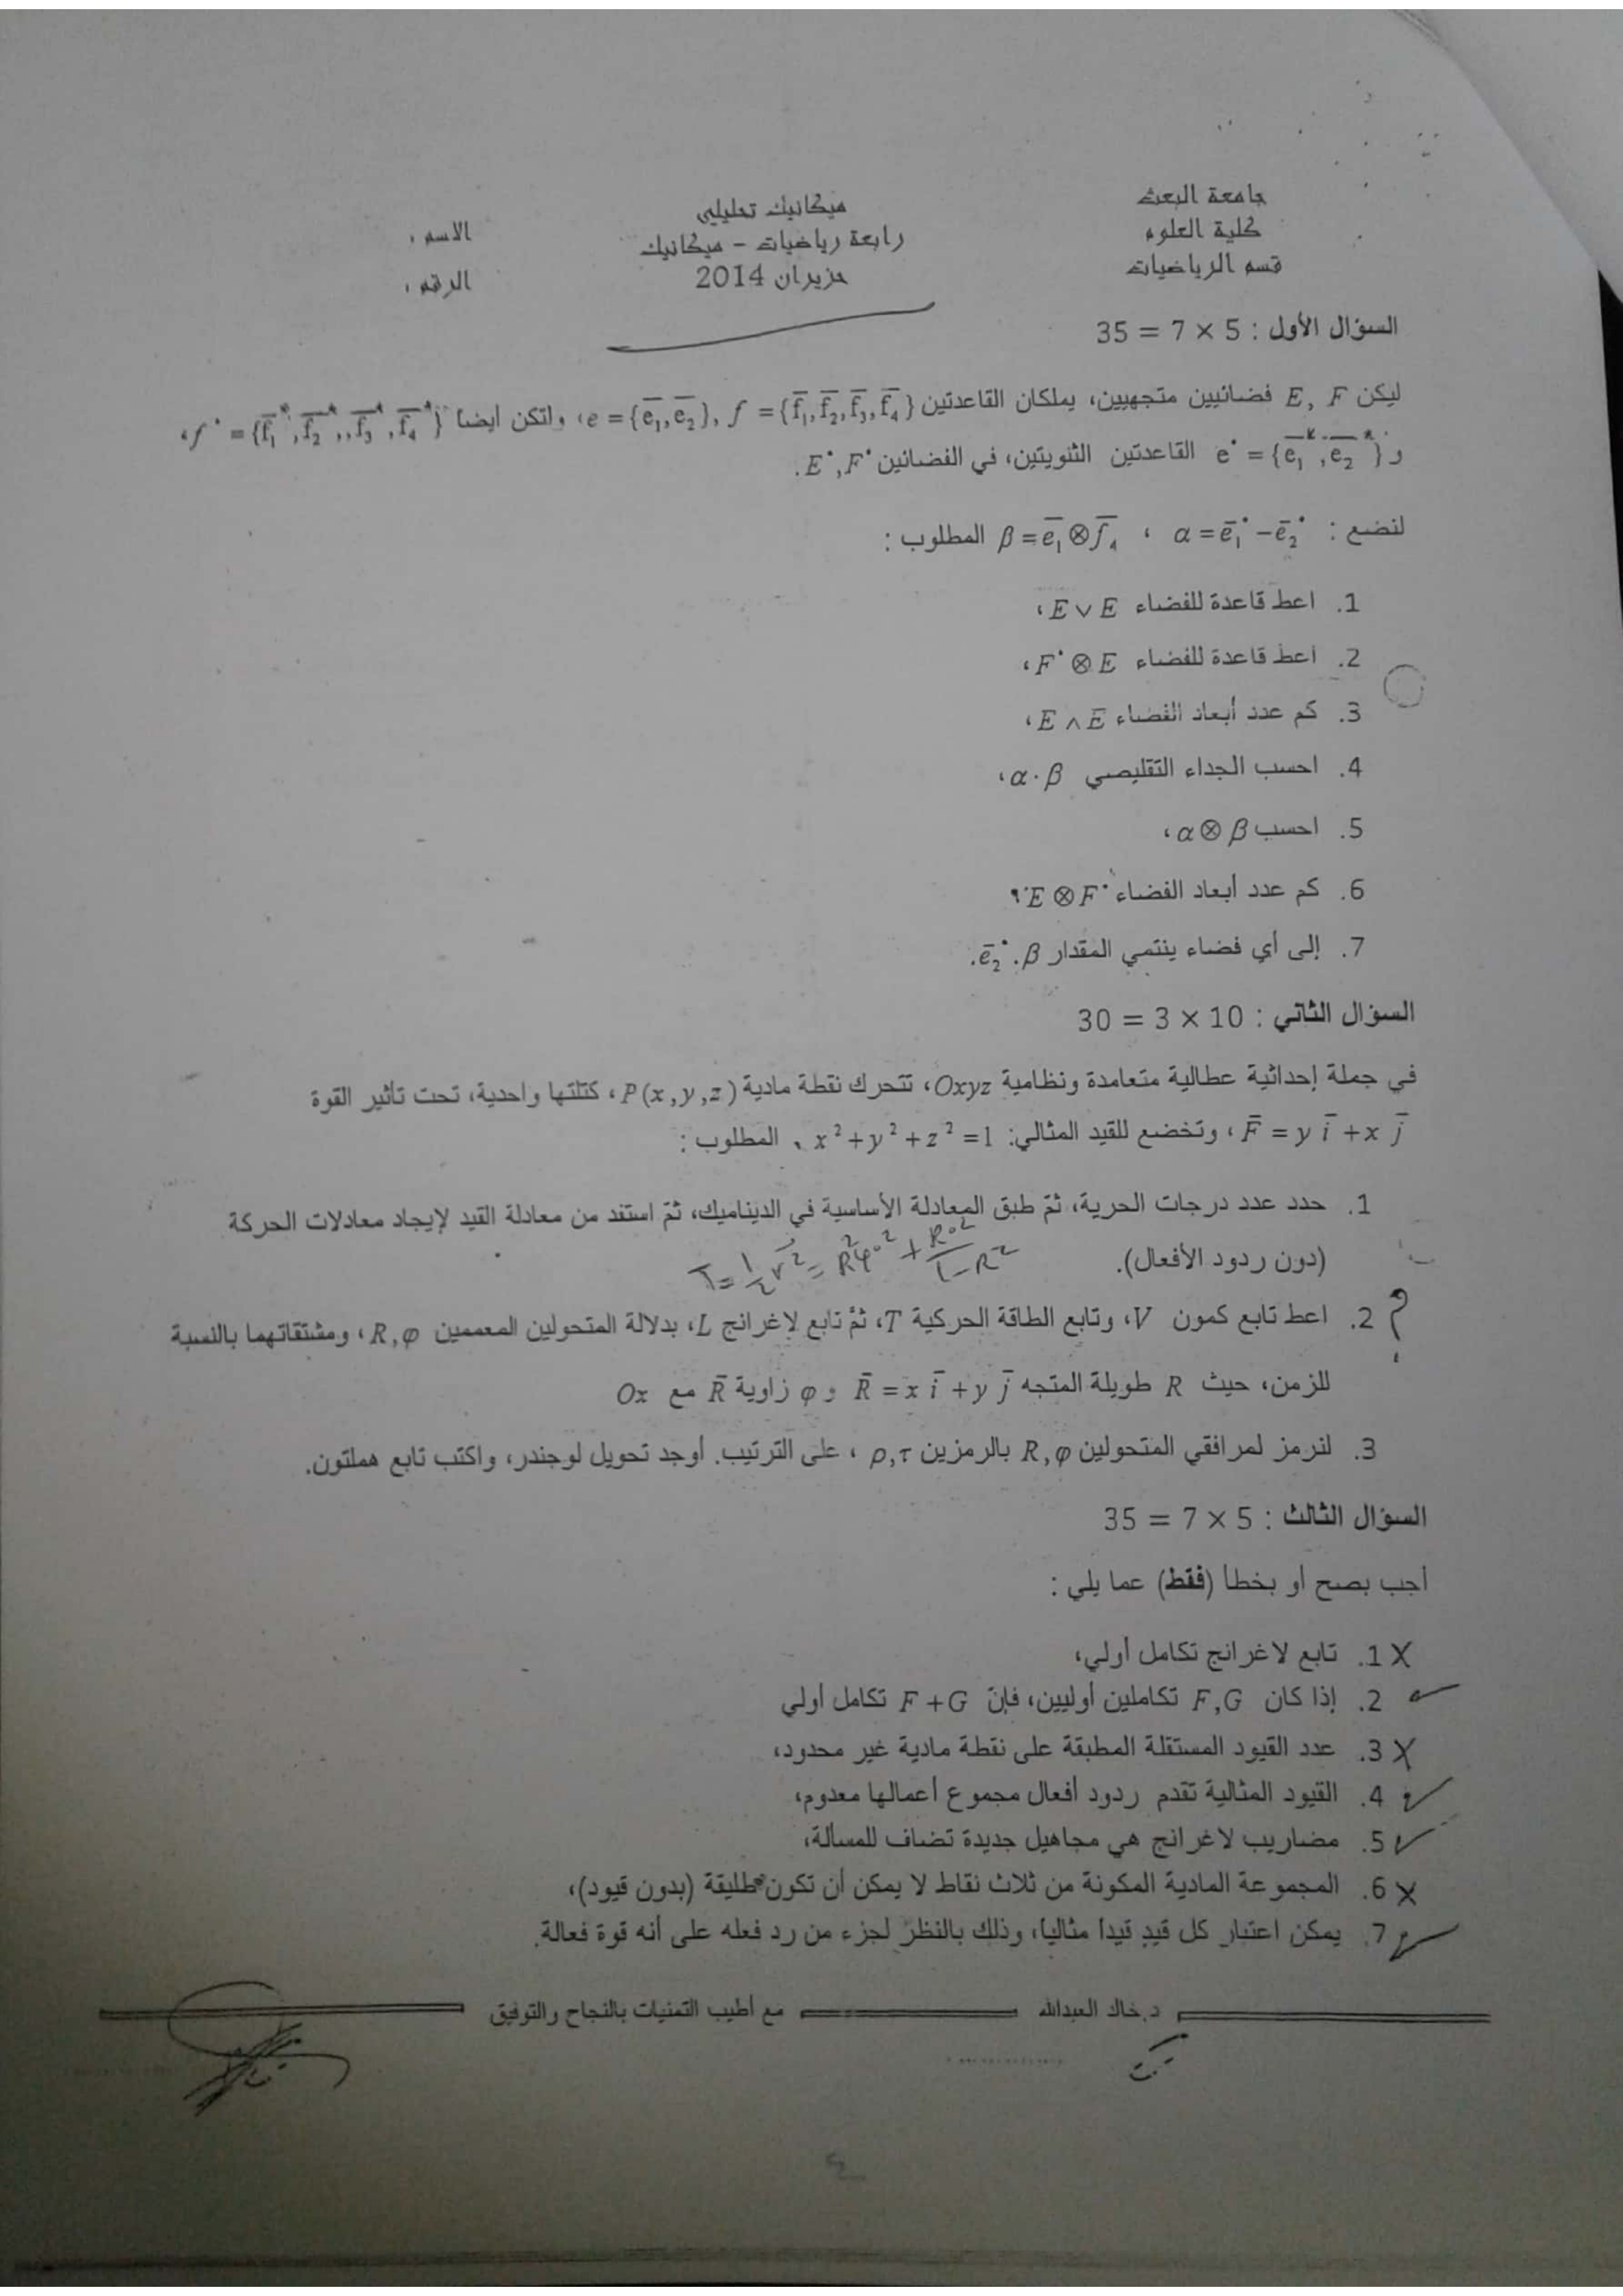 جامعة البعث
كلية العلوم
قسم الرياضيات
ميكانيك تحليلي
رابعة رياضيات - ميكانيك
حزيران 2014
الاسم :
الرقم :
السؤال الأول : 5 × 7 = 35
ليكن E, F فضائيين متجهيين، يملكان القاعدتين e = {e̅₁, e̅₂}, f = {f̅₁, f̅₂, f̅₃, f̅₄}، ولتكن أيضا f* = {f̅₁*, f̅₂*,, f̅₃*, f̅₄*}،
و e* = {e̅₁*, e̅₂*} القاعدتين الثنويتين، في الفضائين E*, F*.
لنضع : α = e̅₁* − e̅₂* ، β = e̅₁ ⊗ f̅₄ المطلوب :
1. اعط قاعدة للفضاء E ∨ E،
2. اعط قاعدة للفضاء F* ⊗ E،
3. كم عدد أبعاد الفضاء E ∧ E،
4. احسب الجداء التقليصي α · β،
5. احسب α ⊗ β،
6. كم عدد أبعاد الفضاء E ⊗ F*؟
7. إلى أي فضاء ينتمي المقدار e̅₂* . β.
السؤال الثاني : 10 × 3 = 30
في جملة إحداثية عطالية متعامدة ونظامية Oxyz، تتحرك نقطة مادية P(x,y,z)، كتلتها واحدية، تحت تأثير القوة
F̅ = y i̅ + x j̅ ، وتخضع للقيد المثالي: x² + y² + z² = 1 ، المطلوب :
1. حدد عدد درجات الحرية، ثمّ طبق المعادلة الأساسية في الديناميك، ثمّ استفد من معادلة القيد لإيجاد معادلات الحركة
(دون ردود الأفعال).
T = 1/2 v² = R²φ°² + R°²/1−R²
2. اعط تابع كمون V، وتابع الطاقة الحركية T، ثمّ تابع لاغرانج L، بدلالة المتحولين المعممين R, φ، ومشتقاتهما بالنسبة
للزمن، حيث R طويلة المتجه R̅ = x i̅ + y j̅ و φ زاوية R̅ مع Ox
3. لنرمز لمرافقي المتحولين R, φ بالرمزين ρ, τ ، على الترتيب. أوجد تحويل لوجندر، واكتب تابع هملتون.
السؤال الثالث : 5 × 7 = 35
أجب بصح أو بخطأ (فقط) عما يلي :
X 1. تابع لاغرانج تكامل أولي،
✓ 2. إذا كان F, G تكاملين أوليين، فإنّ F + G تكامل أولي
X 3. عدد القيود المستقلة المطبقة على نقطة مادية غير محدود،
✓ 4. القيود المثالية تقدم ردود أفعال مجموع أعمالها معدوم،
✓ 5. مضاريب لاغرانج هي مجاهيل جديدة تضاف للمسألة،
X 6. المجموعة المادية المكونة من ثلاث نقاط لا يمكن أن تكون طليقة (بدون قيود)،
✓ 7. يمكن اعتبار كل قيدٍ قيداً مثالياً، وذلك بالنظر لجزء من رد فعله على أنه قوة فعالة.
د.خالد العبدالله
مع أطيب التمنيات بالنجاح والتوفيق